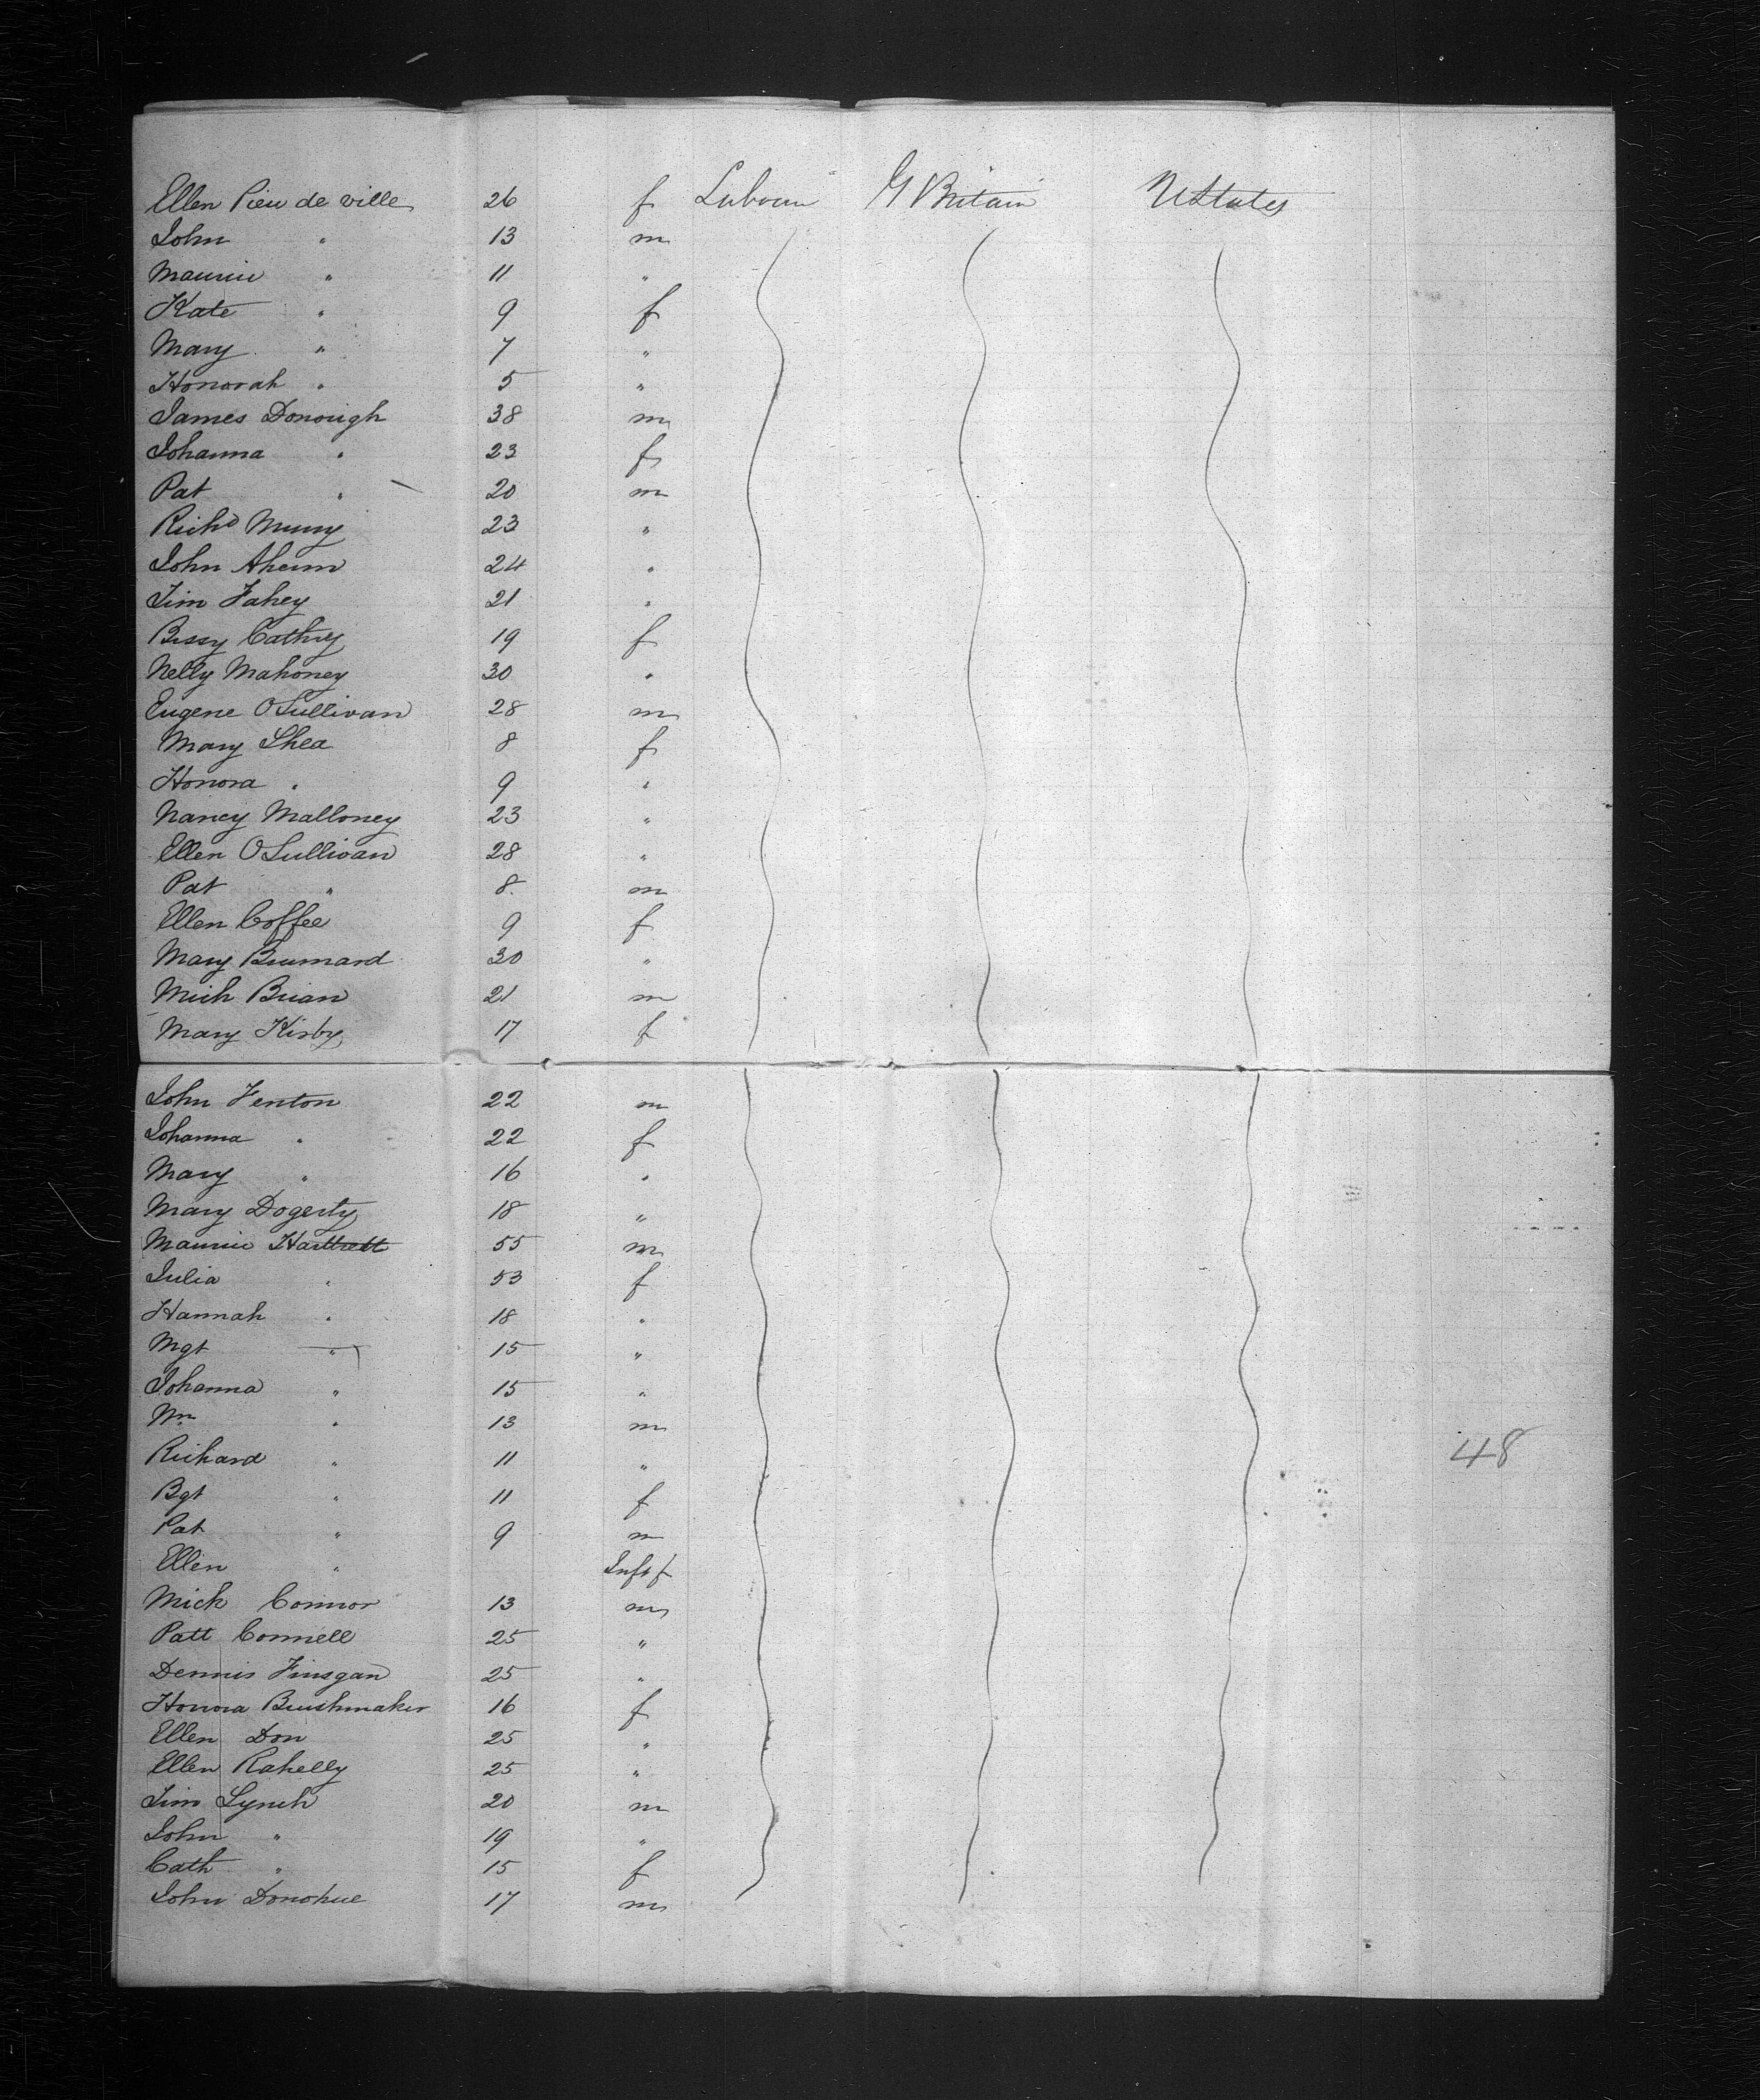 Ellen Pieu de ville 26 f Labour G Britain U States
John " 13 m
Maurice " 11 "
Kate " 9 f
Mary " 7 "
Honorah " 5 "
James Donough 38 m
Johanna " 23 f
Pat " 20 m
Richd 23 "
John Ahern 24 "
Tim Fahey 21 "
Bessy 19 f
Nelly Mahoney 30 "
Eugene O Sullivan 28 m
Mary Shea 8 f
Honora " 9 "
Nancy Malloney 23 "
Ellen O Sullivan 28 "
Pat " 8 m
Ellen Coffee 9 f
Mary 30 "
Mich Brian 21 m
Mary Kirby 17 f
John Fenton 22 m
Johanna " 22 f
Mary " 16 "
Mary Dogerty 18 "
Maurice Hartnett 55 m
Julia " 53 f
Hannah " 18 "
Mgt " 15 "
Johanna " 15 "
Wm " 13 m
Richard " 11 "
48
Bgt " 11 f
Pat " 9 m
Ellen " Inft f
Mick Connor 13 m
Patt Connell 25 "
Dennis Finsgan 25 "
Honora Brushmaker 16 f
Ellen Don 25 "
Ellen Rahelly 25 "
Tim Lynch 20 m
John " 19 "
Cath " 15 f
John Donohue 17 m